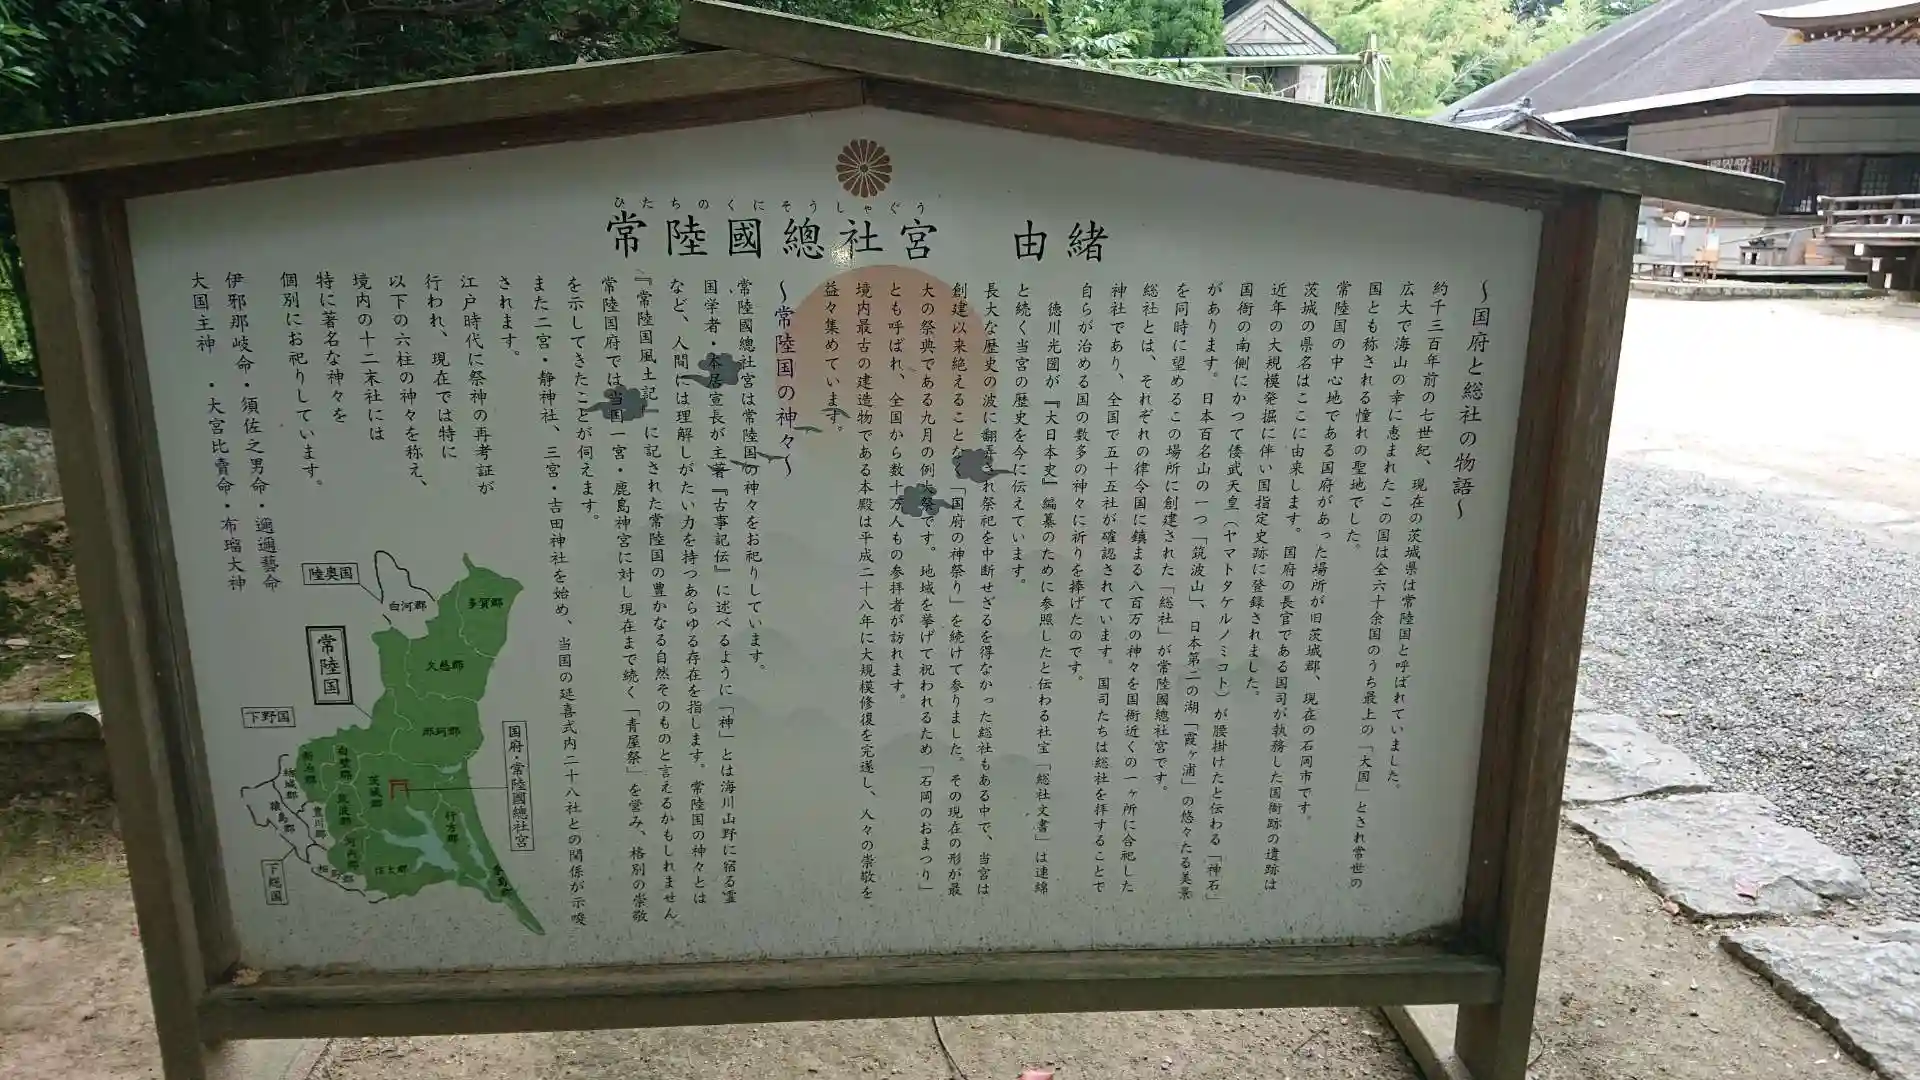 ひたちのくにそうしゃぐう
常陸國總社宮　由緒
～国府と総社の物語～
約千三百年前の七世紀、現在の茨城県は常陸国と呼ばれていました。
広大で海山の幸に恵まれたこの国は全六十余国のうち最上の「大国」とされ常世の
国とも称される憧れの聖地でした。
常陸国の中心地である国府があった場所が旧茨城郡、現在の石岡市です。
茨城の県名はここに由来します。国府の長官である国司が執務した国衙跡の遺跡は
近年の大規模発掘に伴い国指定史跡に登録されました。
国衙の南側にかつて倭武天皇（ヤマトタケルノミコト）が腰掛けたと伝わる「神石」
があります。日本百名山の一つ「筑波山」、日本第二の湖「霞ヶ浦」の悠々たる美景
を同時に望めるこの場所に創建された「総社」が常陸國總社宮です。
総社とは、それぞれの律令国に鎮まる八百万の神々を国衙近くの一ヶ所に合祀した
神社であり、全国で五十五社が確認されています。国司たちは総社を拝することで
自らが治める国の数多の神々に祈りを捧げたのです。
徳川光圀が『大日本史』編纂のために参照したと伝わる社宝「総社文書」は連綿
と続く当宮の歴史を今に伝えています。
長大な歴史の波に翻弄され祭祀を中断せざるを得なかった総社もある中で、当宮は
創建以来絶えることなく「国府の神祭り」を続けて参りました。その現在の形が最
大の祭典である九月の例大祭です。地域を挙げて祝われるため「石岡のおまつり」
とも呼ばれ、全国から数十万人もの参拝者が訪れます。
境内最古の建造物である本殿は平成二十八年に大規模修復を完遂し、人々の崇敬を
益々集めています。
～常陸国の神々～
常陸國總社宮は常陸国の神々をお祀りしています。
国学者・本居宣長が主著『古事記伝』に述べるように「神」とは海川山野に宿る霊
など、人間には理解しがたい力を持つあらゆる存在を指します。常陸国の神々とは
『常陸国風土記』に記された常陸国の豊かなる自然そのものと言えるかもしれません。
常陸国府では当国一宮・鹿島神宮に対し現在まで続く「青屋祭」を営み、格別の崇敬
を示してきたことが伺えます。
また二宮・静神社、三宮・吉田神社を始め、当国の延喜式内二十八社との関係が示唆
されます。
江戸時代に祭神の再考証が
行われ、現在では特に
以下の六柱の神々を称え、
境内の十二末社には
特に著名な神々を
個別にお祀りしています。
伊邪那岐命・須佐之男命・邇邇藝命
大国主神・大宮比賣命・布瑠大神
陸奥国
白河郡
多賀郡
常陸国
久慈郡
下野国
那珂郡
国府・常陸國總社宮
新治郡
白壁郡
茨城郡
結城郡
筑波郡
猿島郡
豊田郡
行方郡
河内郡
相馬郡
信太郡
鹿島郡
下総国